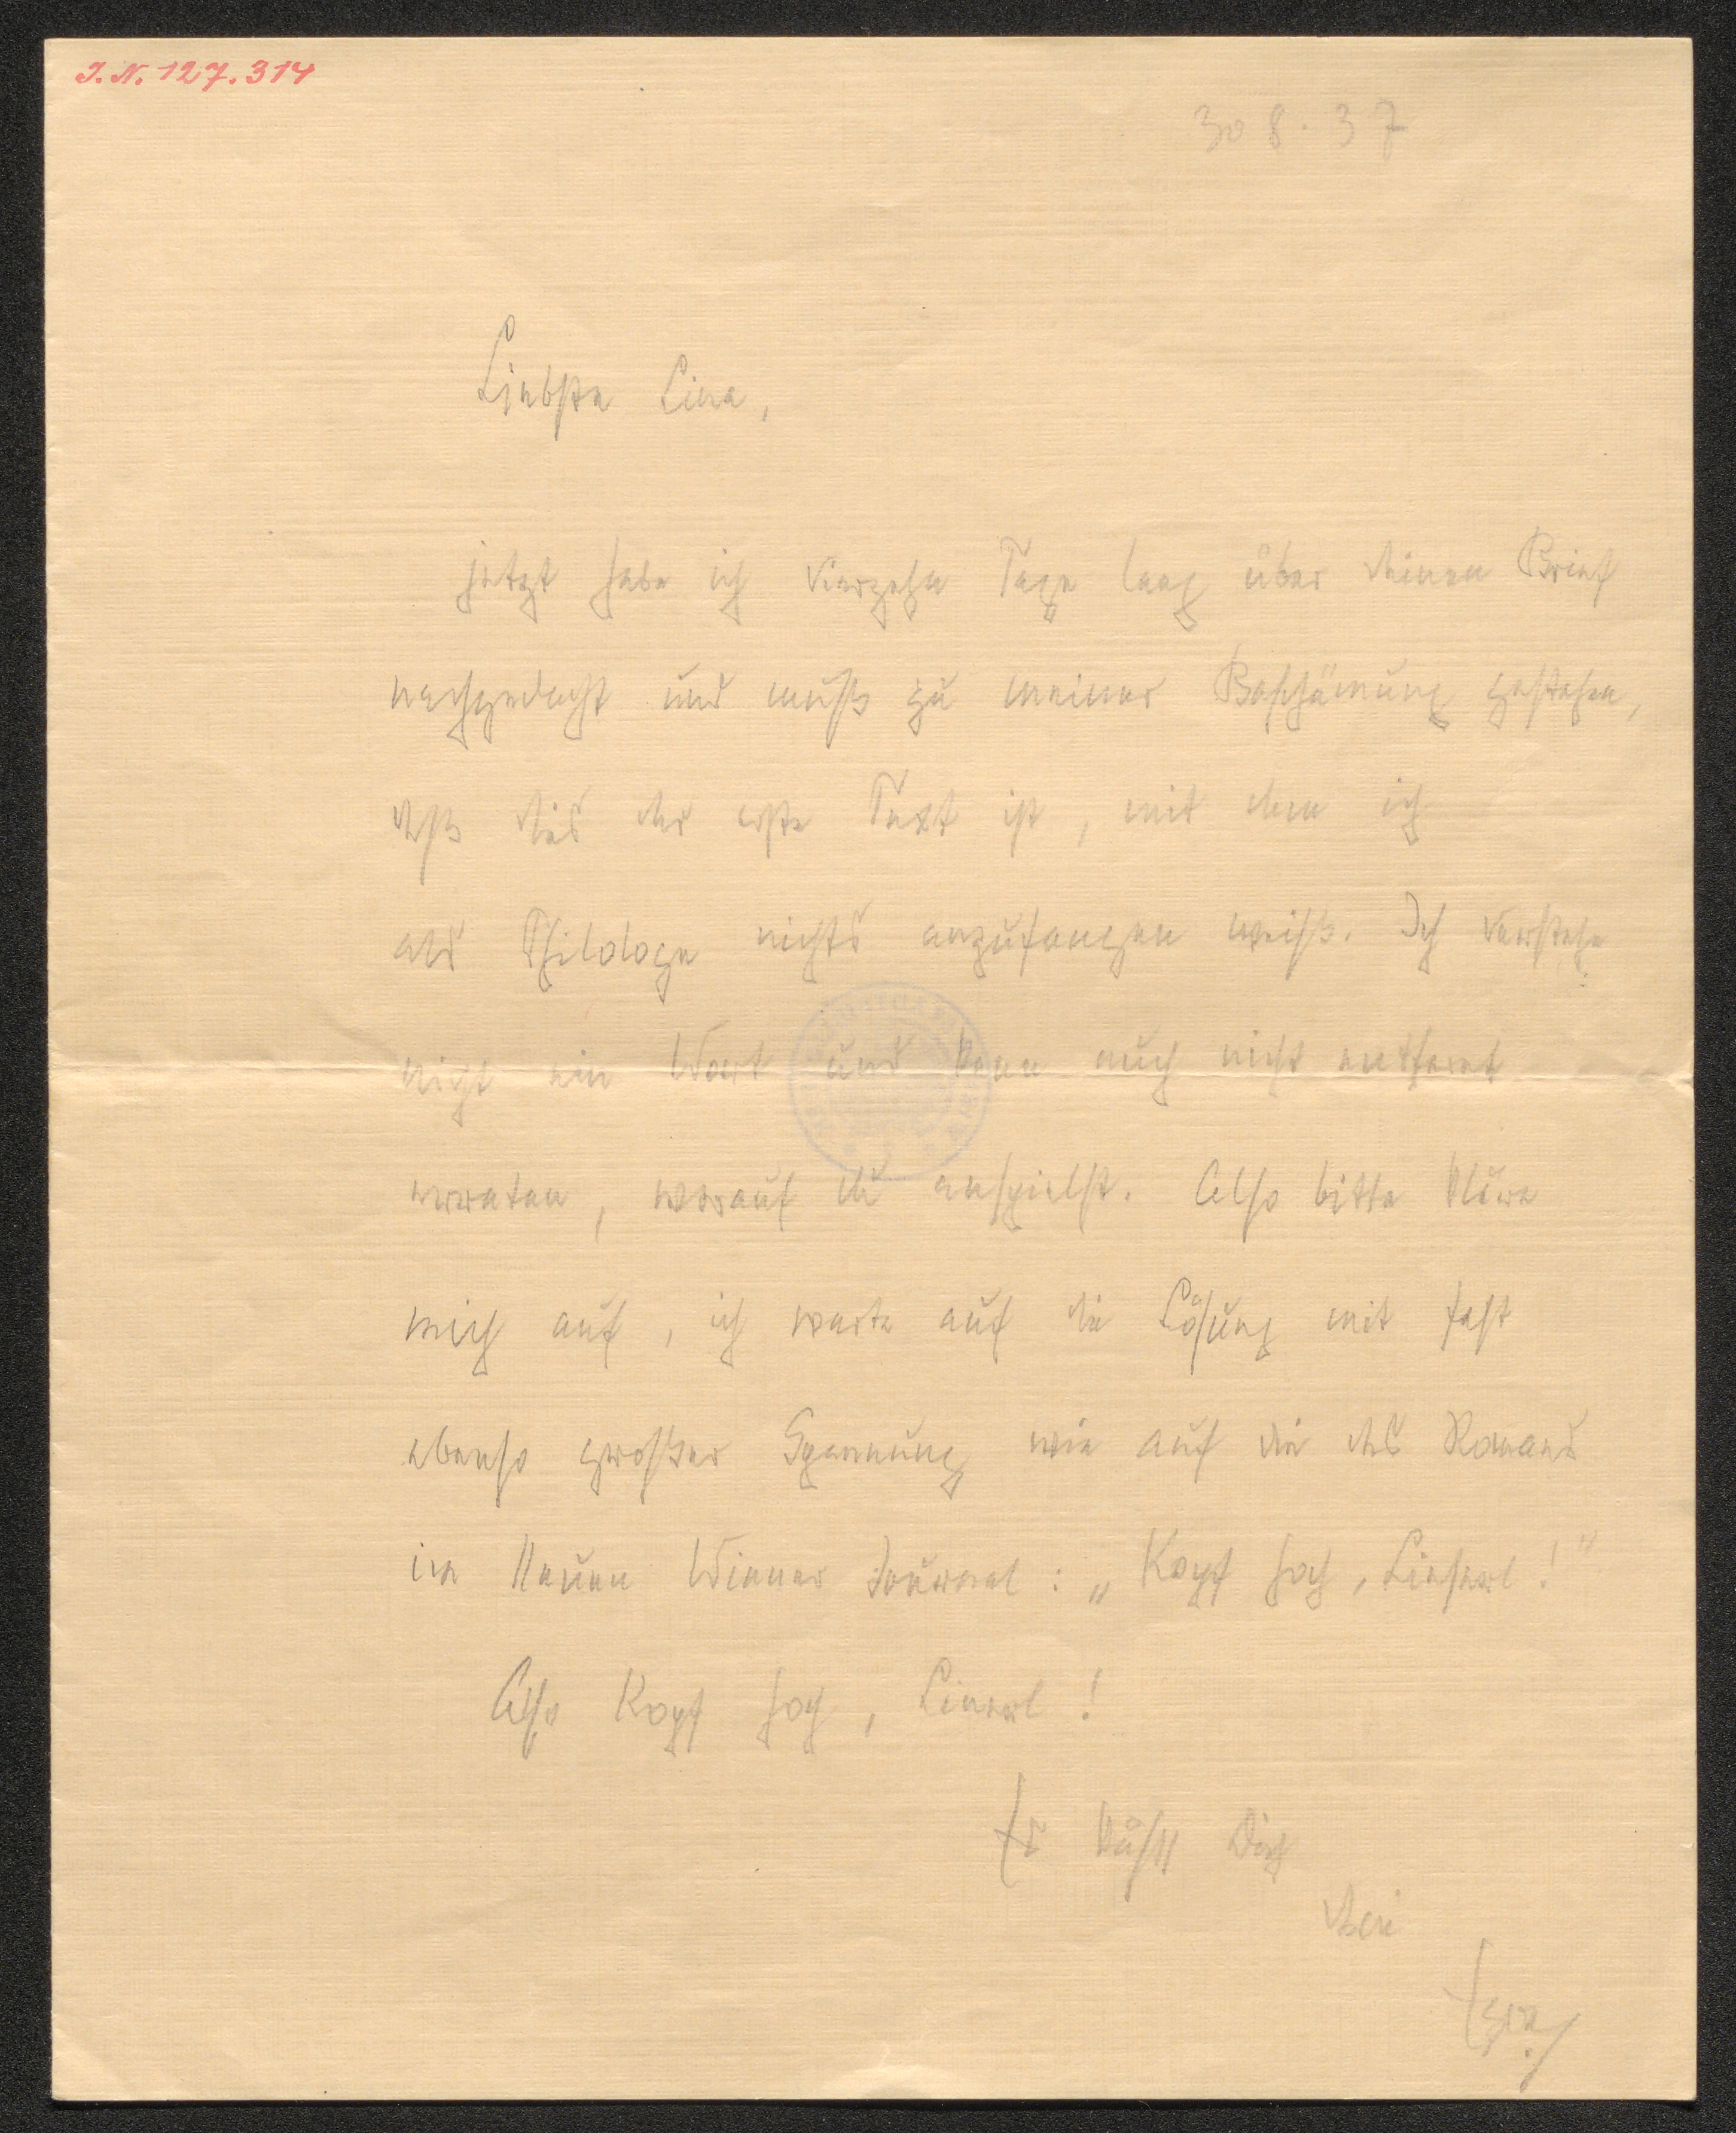 I. N. 127.314
30 8. 37
Liebste Lina,
jetzt habe ich vierzehn Tage lang über deinen Brief
nachgedacht und muß zu meiner Beschämung gestehen,
daß dies der erste Text ist, mit dem ich
als Philologe nichts anzufangen weiß. Ich verstehe
nicht ein Wort und kann auch nicht entfernt
erraten, worauf du anspielst. Also bitte kläre
mich auf, ich warte auf die Lösung mit fast
ebenso großer Spannung wie auf die des Romans
im Neuen Wiener Journal: „Kopf hoch, Lieserl!"
Also Kopf hoch, Linerl!
Es küßt Dich
Dein
Egon